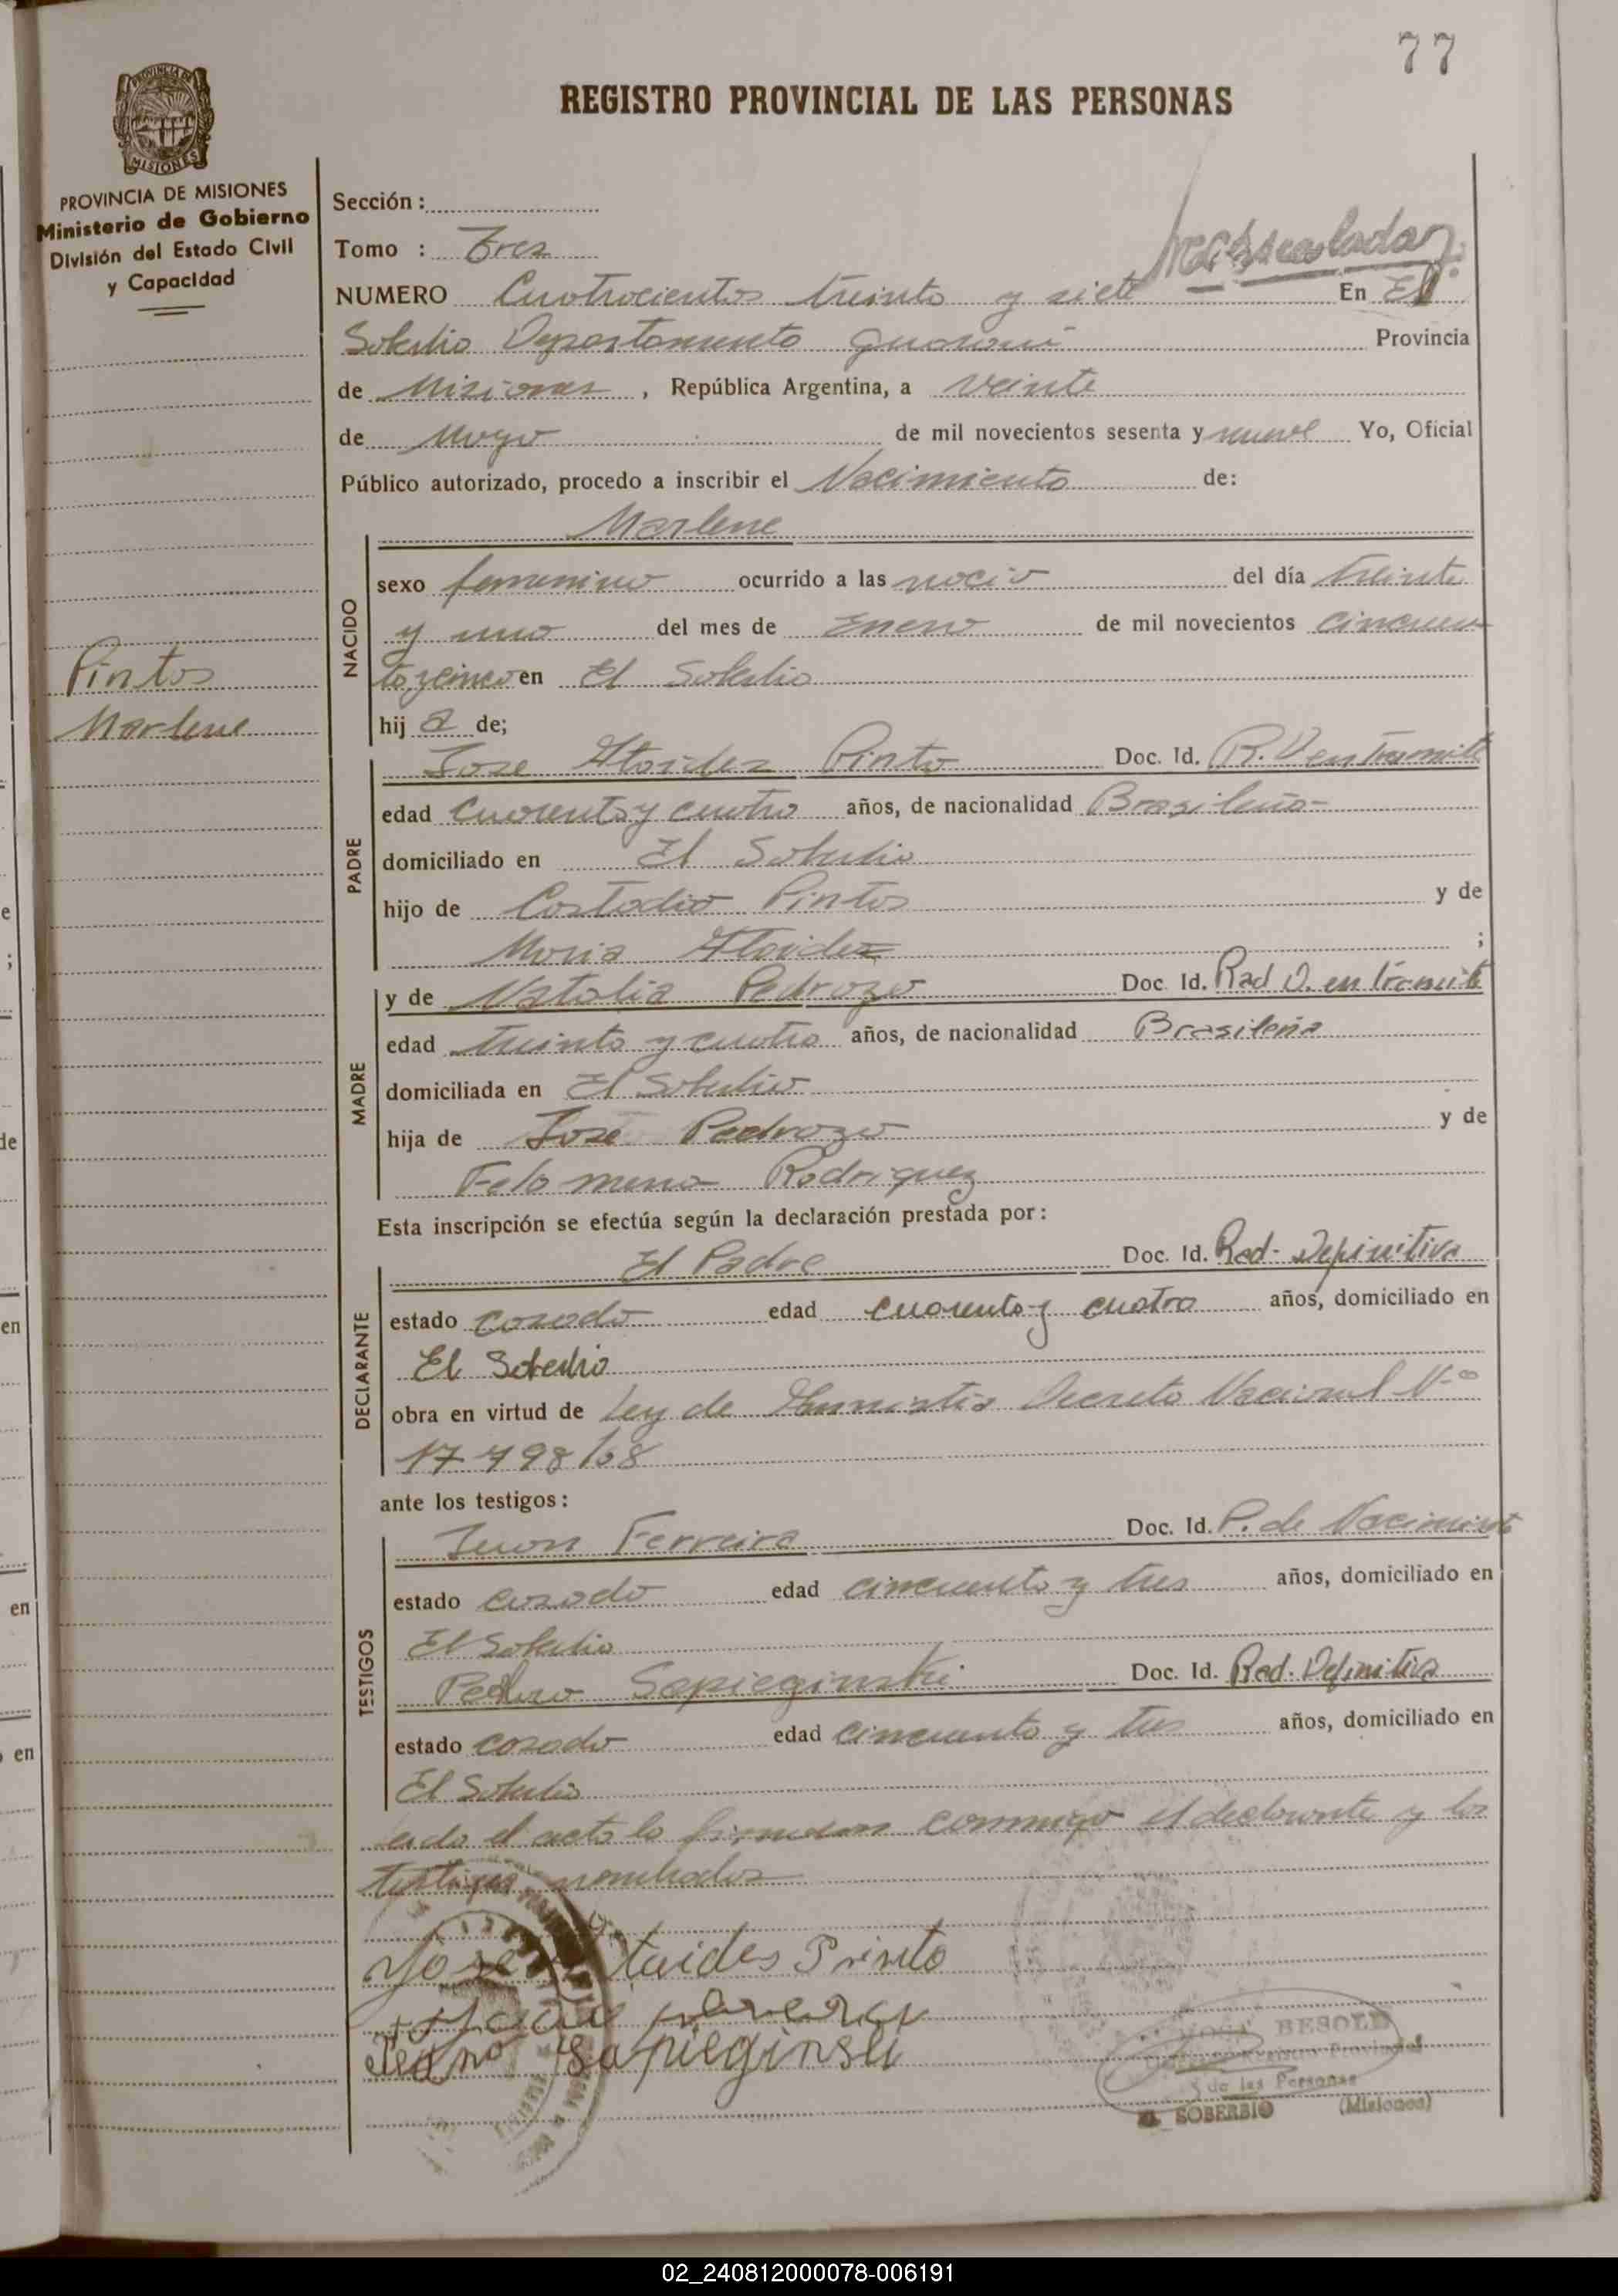 77
REGISTRO PROVINCIAL DE LAS PERSONAS
PROVINCIA DE
MISIONES
PROVINCIA DE MISIONES
Ministerio de Gobierno
División del Estado Civil
y Capacidad
Pintos
Marlene
Sección :
Tomo : Tres
NUMERO Cuatrocientos treinta y siete En El
Soberbio Departamento Guaraní Provincia
de Misiones , República Argentina, a veinte
de Mayo de mil novecientos sesenta y nueve Yo, Oficial
Público autorizado, procedo a inscribir el Nacimiento de:
Marlene
NACIDO
sexo femenino ocurrido a las del día treinta
y uno del mes de Enero de mil novecientos cincuen
ta y cinco en El Soberbio
hij a de;
PADRE
Jose Ataides Pinto Doc. Id. R. D en Tramite
edad cuarenta y cuatro años, de nacionalidad Brasileña
domiciliado en El Soberbio
hijo de Costodio Pintos y de
Maria Ataides ;
MADRE
y de Natalia Pedrozo Doc. Id. Rad D. en tramite
edad treinta y cuatro años, de nacionalidad Brasileña
domiciliada en El Soberbio
hija de José Pedrozo y de
Felomena Rodriguez
Esta inscripción se efectúa según la declaración prestada por:
DECLARANTE
El Padre Doc. Id. Rad- Definitiva
estado casado edad cuarenta y cuatro años, domiciliado en
El Soberbio
obra en virtud de Ley de Amnistia Decreto Nacional N-º
17 798/68
ante los testigos:
TESTIGOS
Juan Ferreira Doc. Id. P. de Nacimiento
estado casado edad cincuenta y tres años, domiciliado en
El Soberbio
Pedro Sapieginski Doc. Id. Rad. Definitiva
estado casado edad cincuenta y tres años, domiciliado en
El Soberbio
el acta la firmaron conmigo el declarante y los
testigos nombrados
Jose Ataides Pinto
Sapieginski
BESOLD
Registro Provincial
de las Personas
EL SOBERBIO (Misiones)
02_240812000078-006191